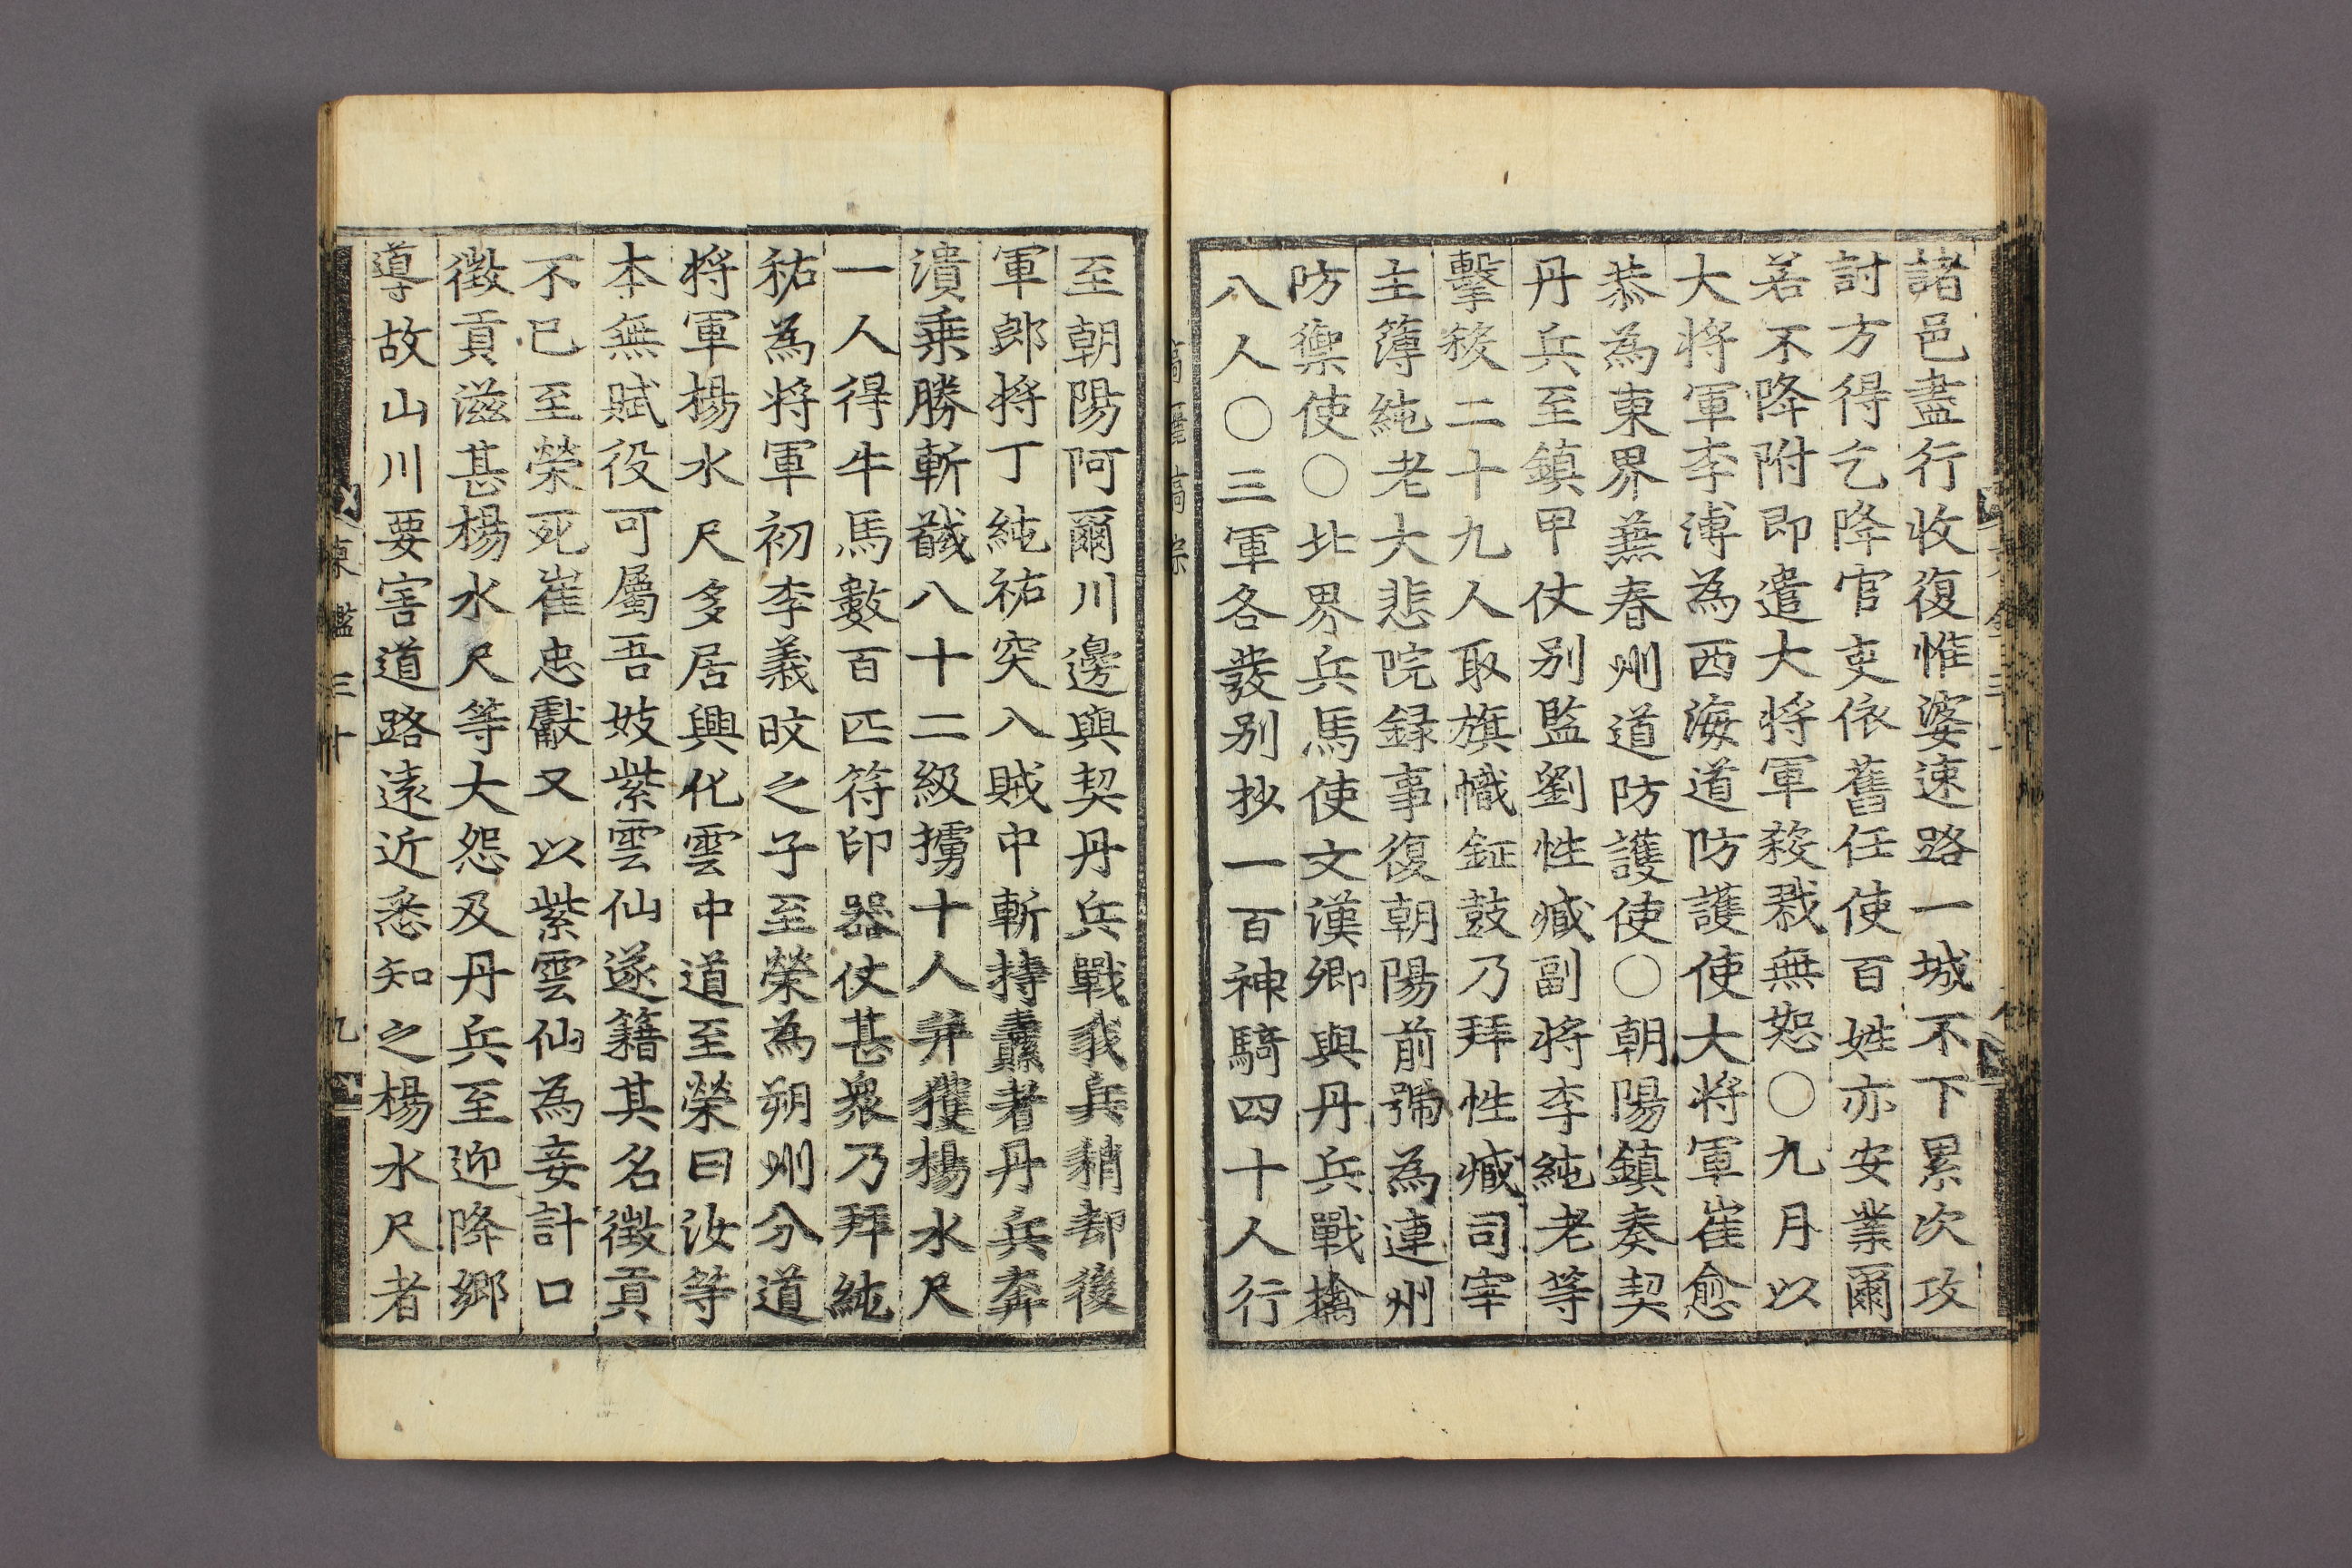 諸邑盡行收復惟婆速路一城不下累次攻
討方得乞降官吏依舊任使百姓亦安業爾
若不降附即遣大將軍殺戮無恕○九月以
大將軍李溥為西海道防護使大將軍崔愈
恭為東界兼春州道防護使○朝陽鎮奏契
丹兵至鎮甲仗别監劉性臧副將李純老等
擊殺二十九人取旗幟鉦鼓乃拜性臧司宰
主簿純老大悲院録事復朝陽前號為連州
防禦使○北界兵馬使文漢卿與丹兵戰擒
八人○三軍各發别抄一百神騎四十人行
至朝陽阿爾川邊與契丹兵戰我兵稍却後
軍郎將丁純祐突入賊中斬持纛者丹兵奔
潰乗勝斬馘八十二級擄十人并獲楊水尺
一人得牛馬數百匹符印器仗甚衆乃拜純
祐為將軍初李義旼之子至榮為朔州分道
將軍楊水尺多居興化雲中道至榮曰汝等
本無賦役可屬吾妓紫雲仙遂籍其名徵貢
不已至榮死崔忠獻又以紫雲仙為妾計口
徵貢滋甚楊水尺等大怨及丹兵至迎降鄉
導故山川要害道路遠近悉知之楊水尺者
東鑑三十
九